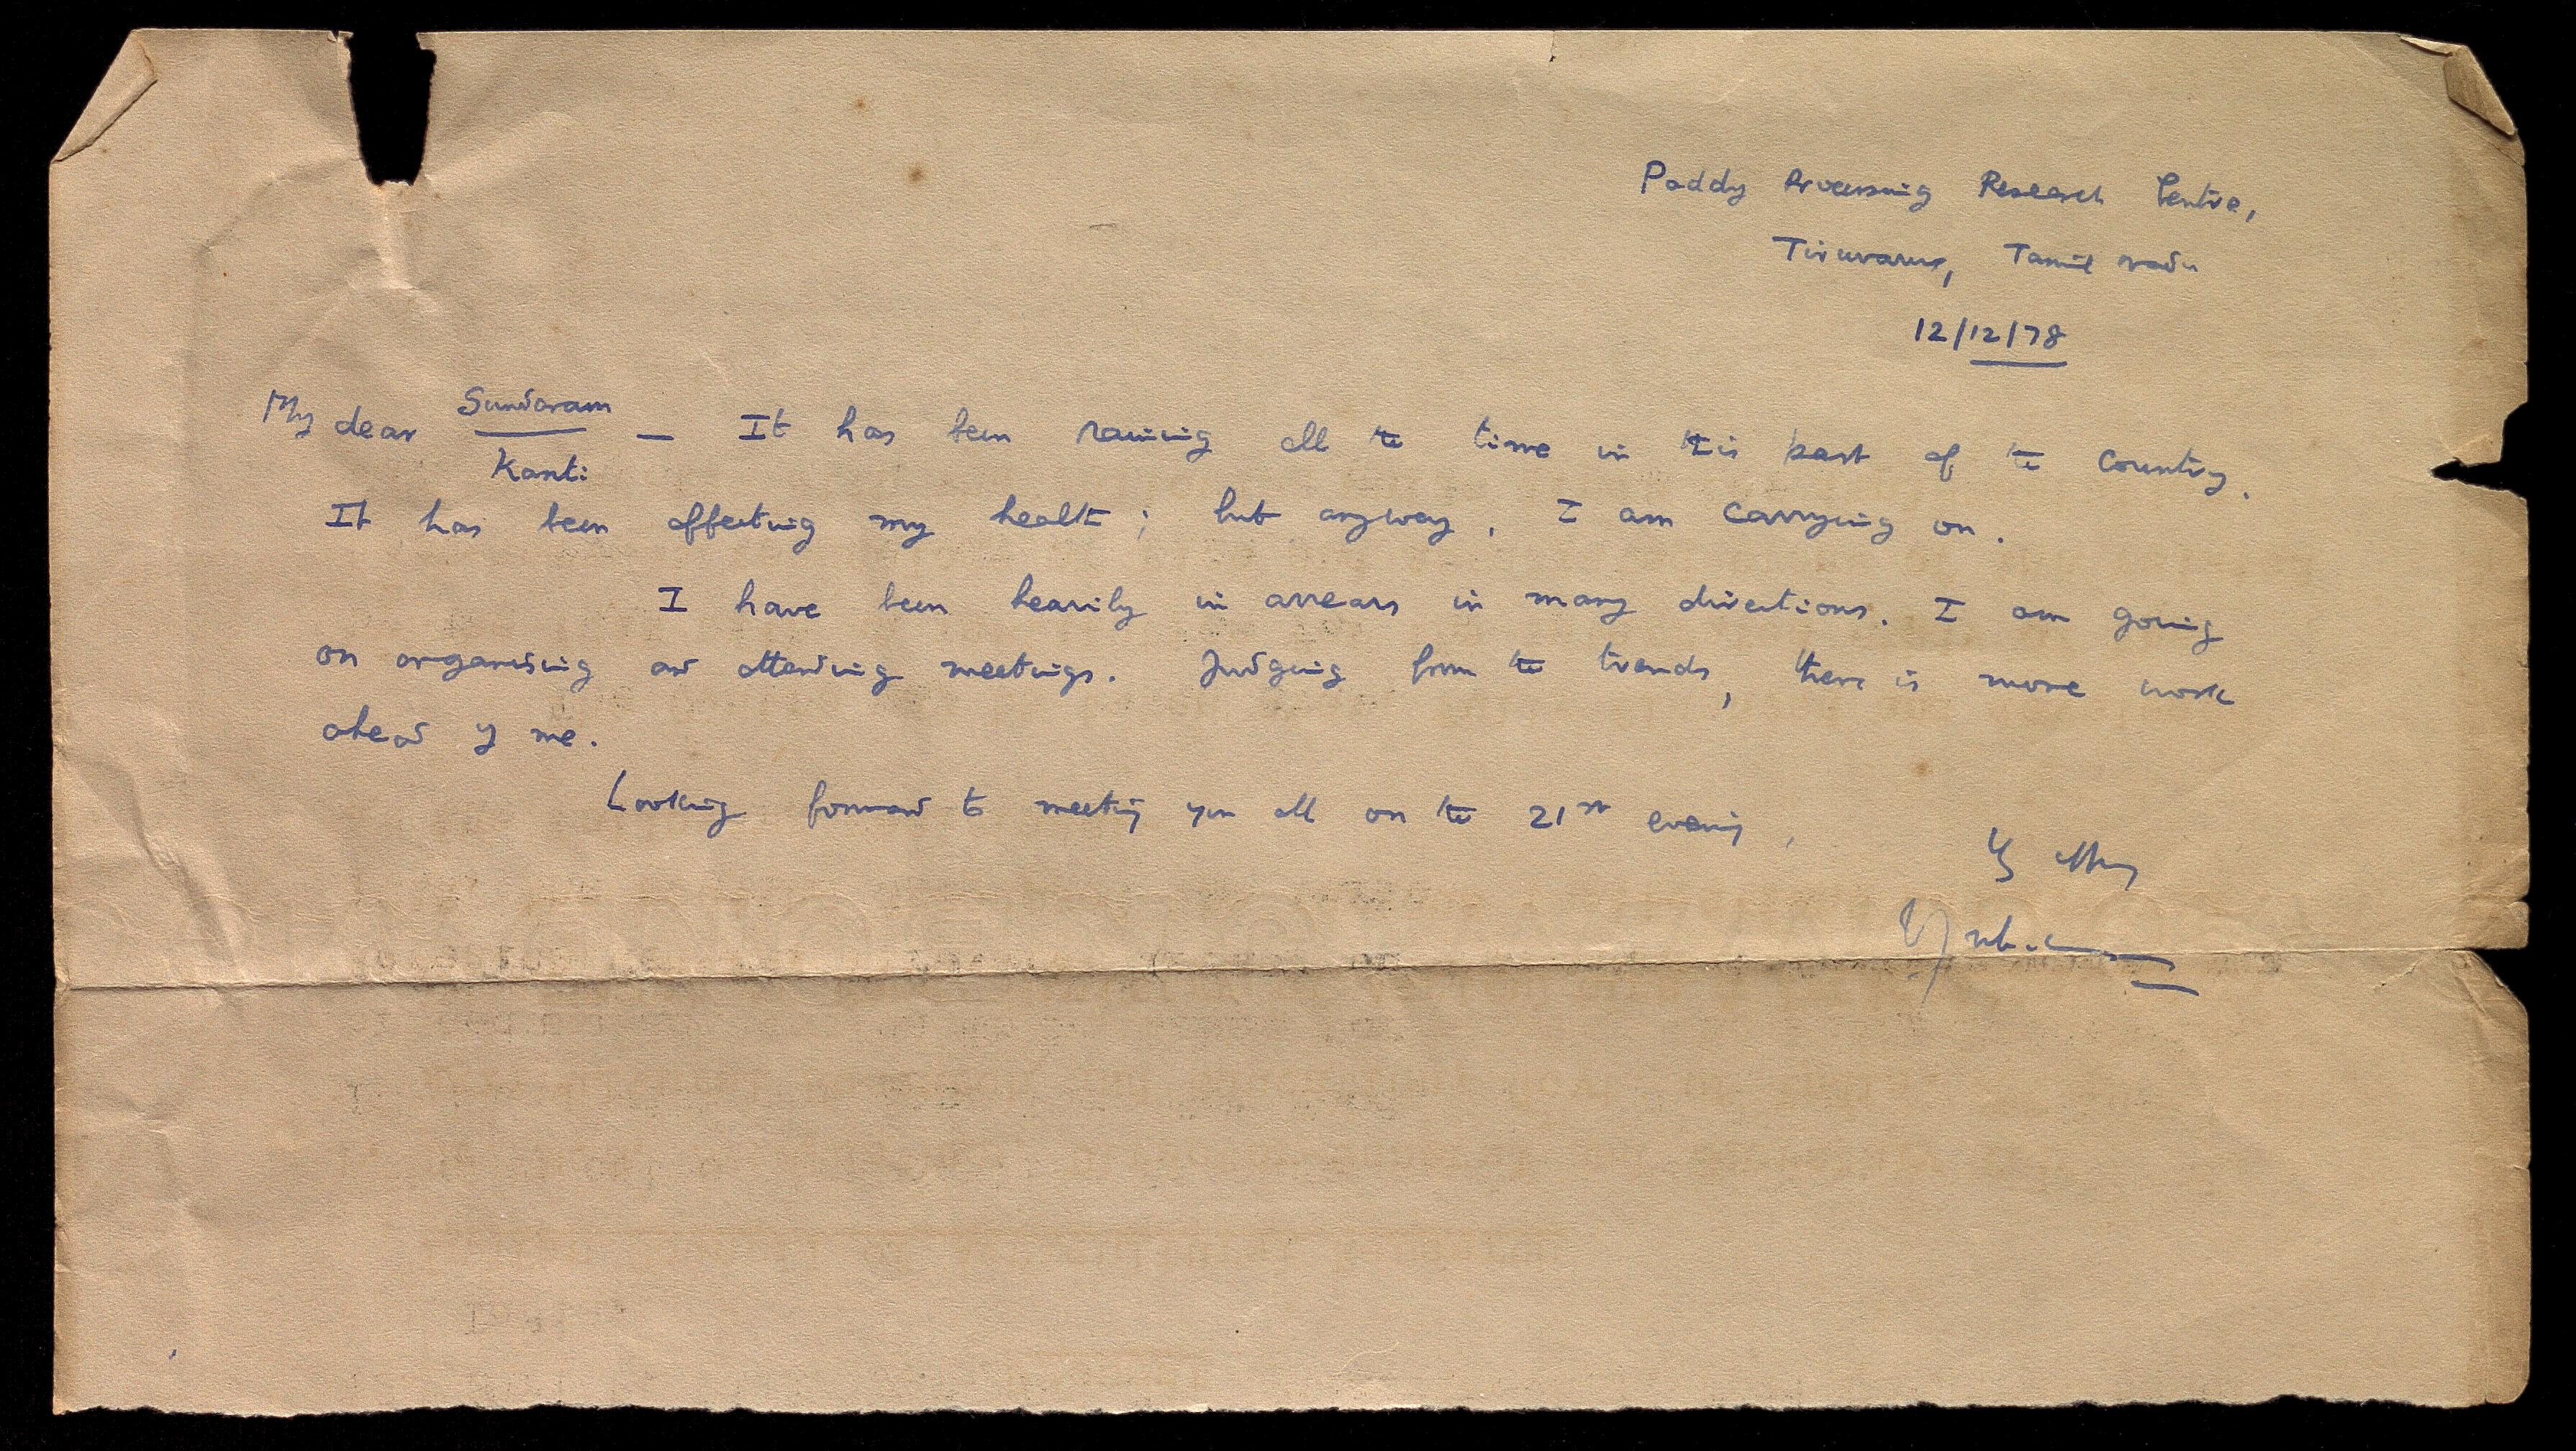 Paddy Processing Research Centre,
Tiruvarur, Tamil Nadu
12/12/78
My dear Sundaram
Kanti
— It has been raining all the time in this part of the country.
It has been affecting my health; but anyway, I am carrying on.
I have been heavily in arrears in many directions. I am going
on organising and attending meetings. Judging from the trends, there is more work
ahead of me.
Looking forward to meeting you all on the 21st evening,